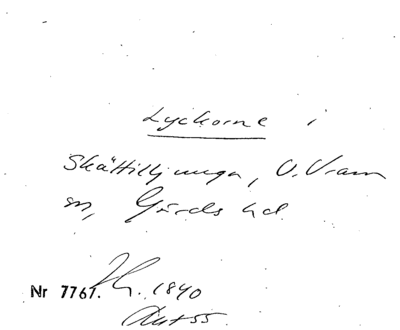 Lyckorne i
Skättilljunga, V. Vram
sn, Gärds hd.
Nr 7767. 1840